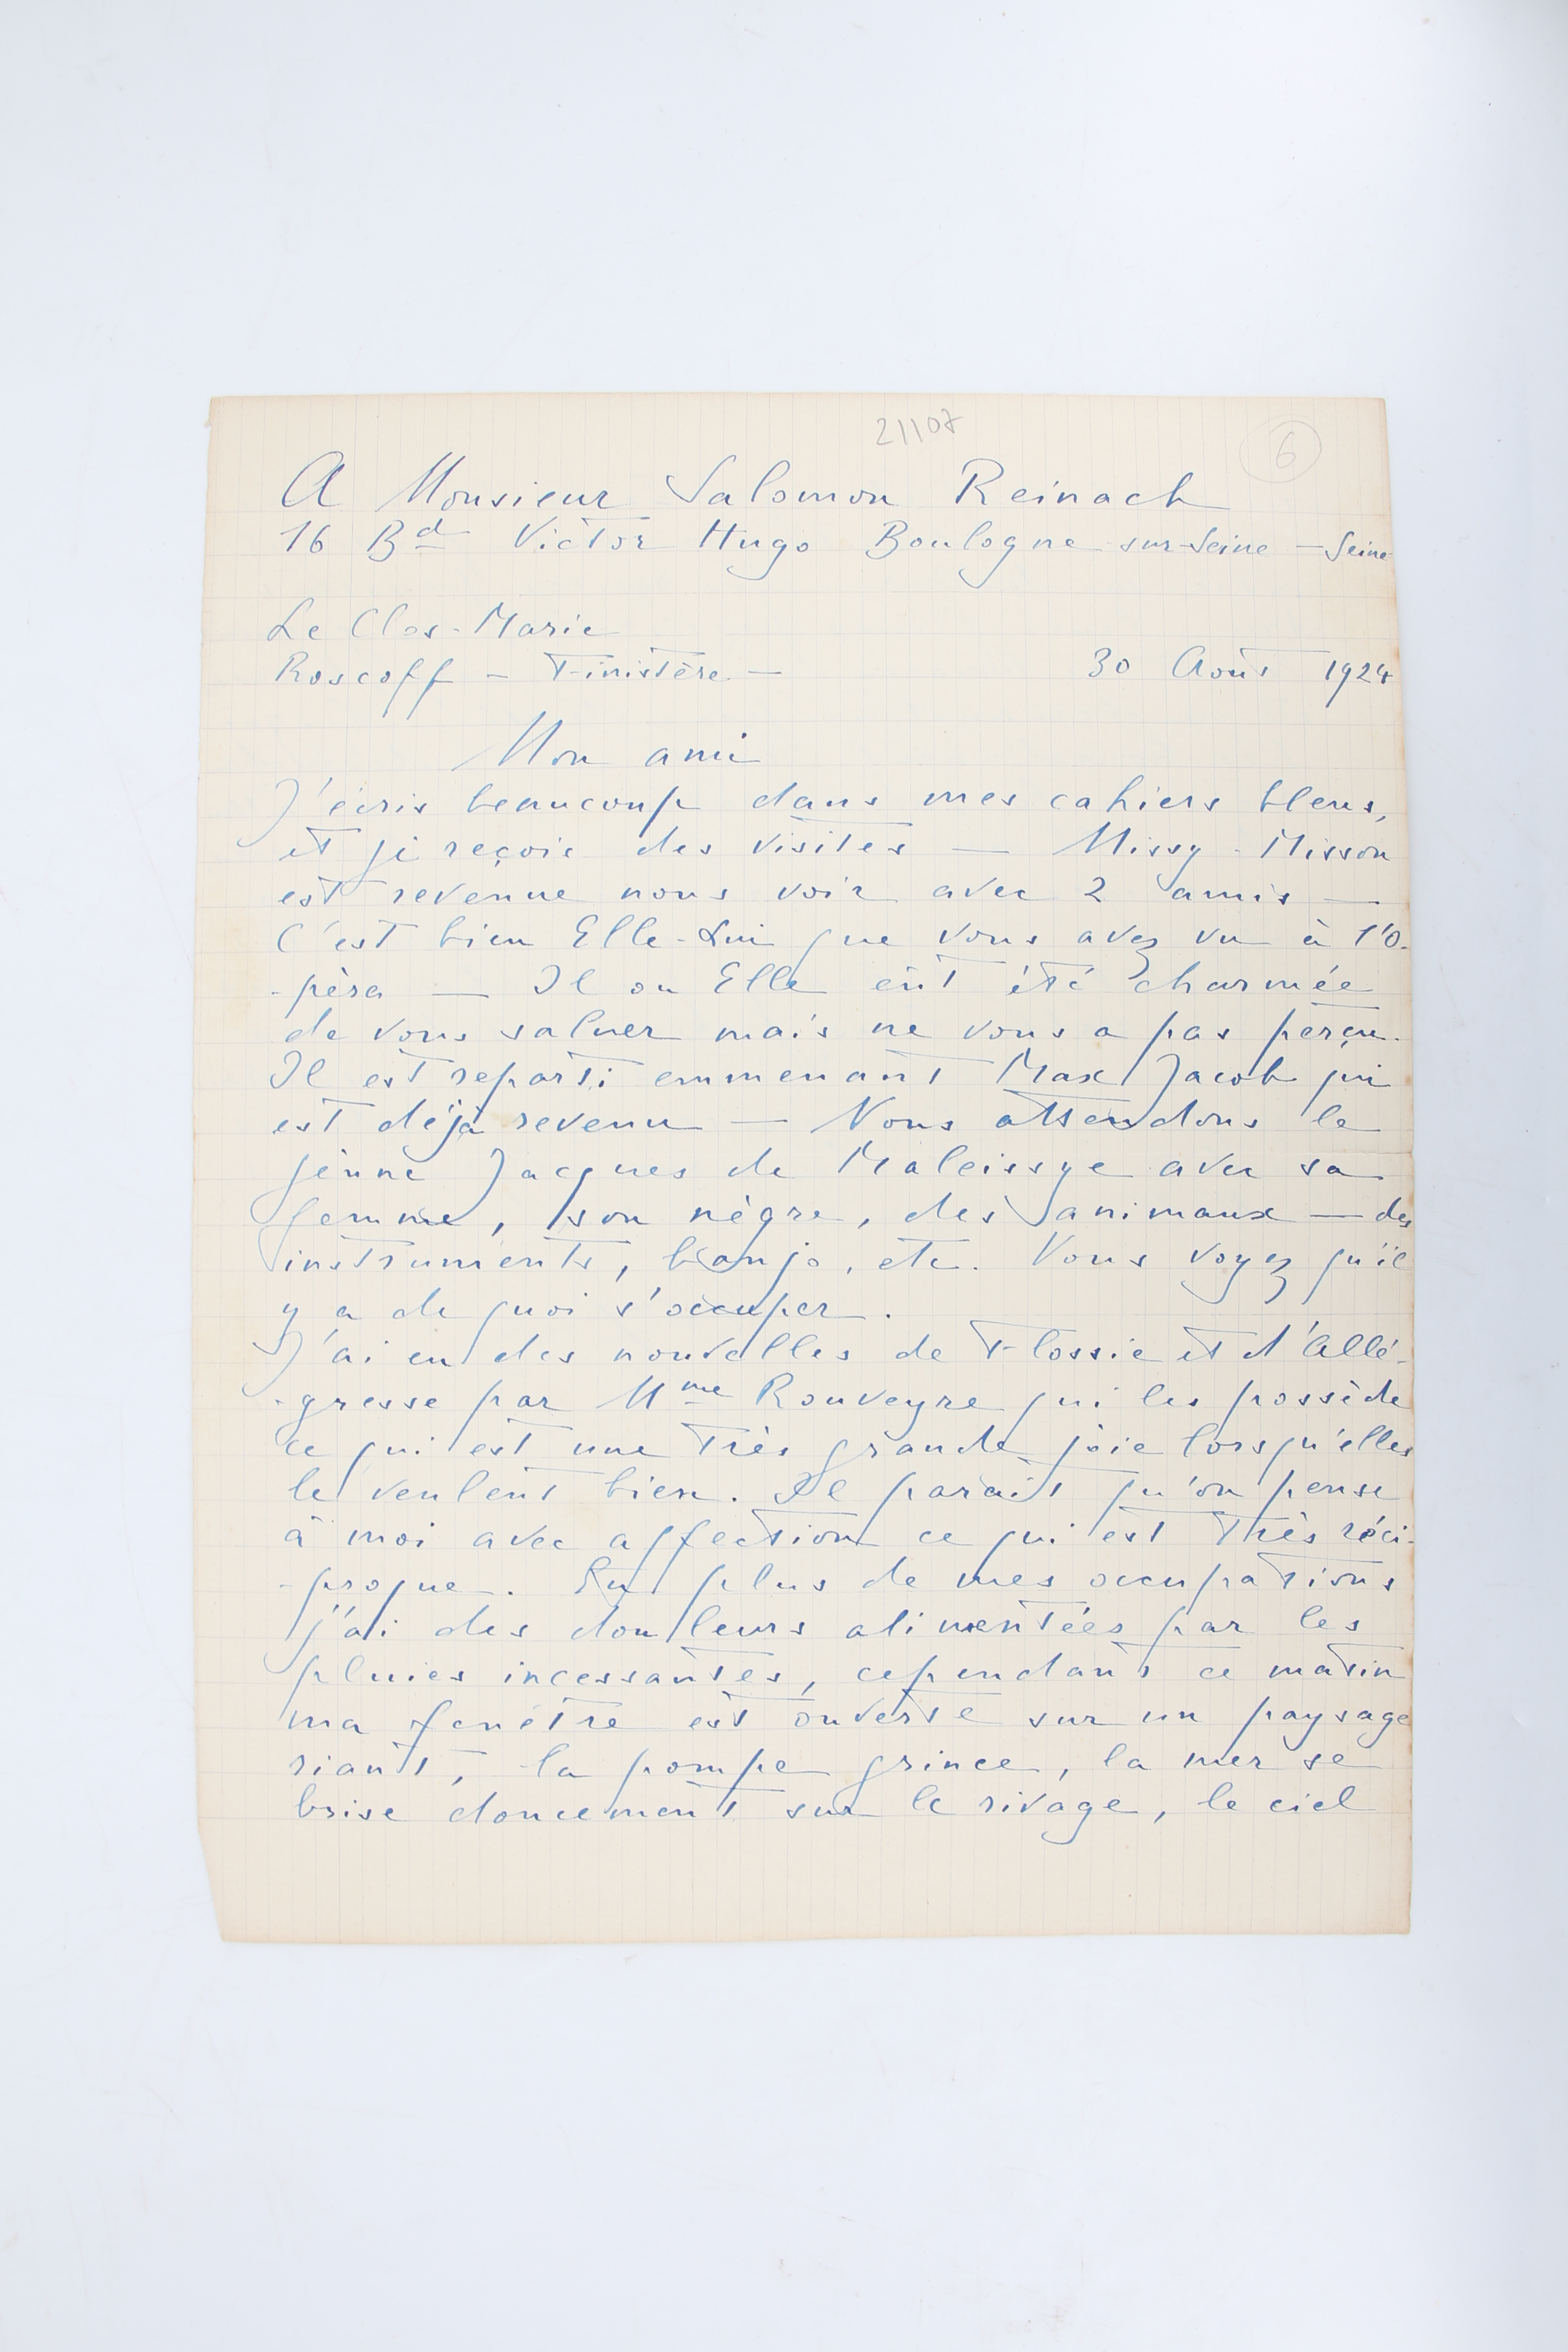 21107
6
A Monsieur Salomon Reinach
16 Bd Victor Hugo Boulogne sur-Seine - Seine
Le Clos-Marie
Roscoff - Finistère - 30 Août 1924
Mon ami
J'écris beaucoup dans mes cahiers bleus,
et je reçois des visites — Missy-Misson
est revenue nous voir avec 2 amis —
C'est bien Elle-Lui que vous avez vu à l'O-
-péra — Il ou Elle eût été charmée
de vous saluer mais ne vous a pas perçu.
Il est reparti emmenant Max Jacob qui
est déjà revenu — Nous attendons le
jeune Jacques de Maleissye avec sa
femme, son nègre, des animaux — des
instruments, banjo, etc. Vous voyez qu'il
y a de quoi s'occuper.
J'ai eu des nouvelles de Flossie et d'Allé-
-gresse par Mme Rouveyre qui les possède
ce qui est une très grande joie lorsqu'elles
le veulent bien. Il paraît qu'on pense
à moi avec affection ce qui est très réci-
-proque. En plus de mes occupations
j'ai des douleurs alimentées par les
pluies incessantes, cependant ce matin
ma fenêtre est ouverte sur un paysage
riant, la pompe grince, la mer se
brise doucement sur le rivage, le ciel